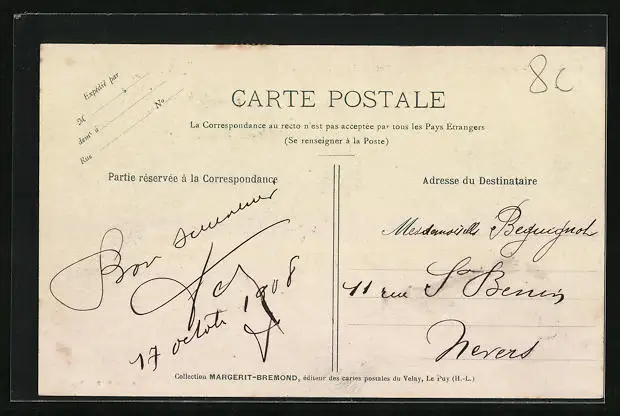 8c
Expédié par
M
à
demt à
Rue
No
CARTE POSTALE
La Correspondance au recto n'est pas acceptée par tous les Pays Etrangers
(Se renseigner à la Poste)
Partie réservée à la Correspondance
Bon souvenir
17 octobr 1908
Adresse du Destinataire
Mesdemoiselles Beguignot
11 rue St Benin
Nevers
Collection MARGERIT-BREMOND, éditeur des cartes postales du Velay, Le Puy (H.-L.)